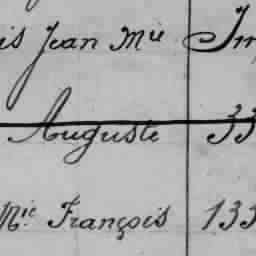 is Jean Mie Im
Auguste 33
Mie François 133